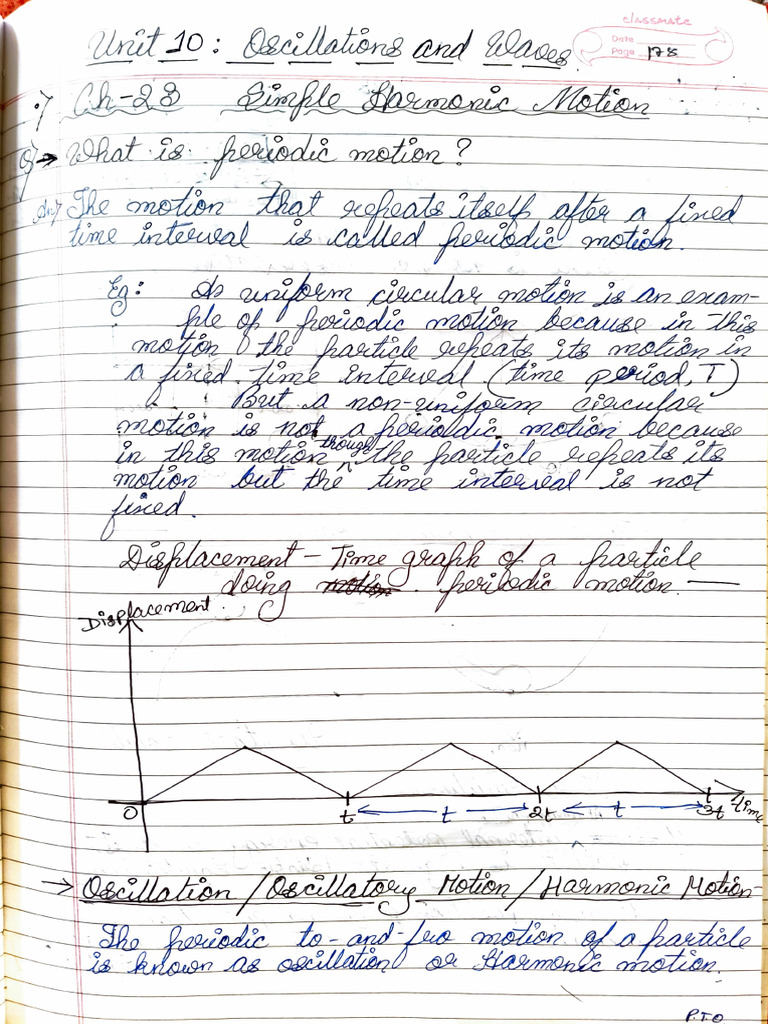 classmate
Date
Page 178
Unit 10: Oscillations and Waves
Ch-28 Simple Harmonic Motion
Q→ What is periodic motion?
Ans) The motion that repeats itself after a fixed
time interval is called periodic motion.
Eg: A uniform circular motion is an exam-
ple of periodic motion because in this
motion the particle repeats its motion in
a fixed time interval (time period, T)
But a non-uniform circular
motion is not a perioidic motion because
in this motion though the particle repeats its
motion but the time interval is not
fixed.
Displacement - Time graph of a particle
doing motion periodic motion. —
Displacement
O t t 2t t 3t time
→ Oscillation / Oscillatory Motion / Harmonic Motion-
The periodic to-and-fro motion of a particle
is known as oscillation or Harmonic motion.
P.T.O